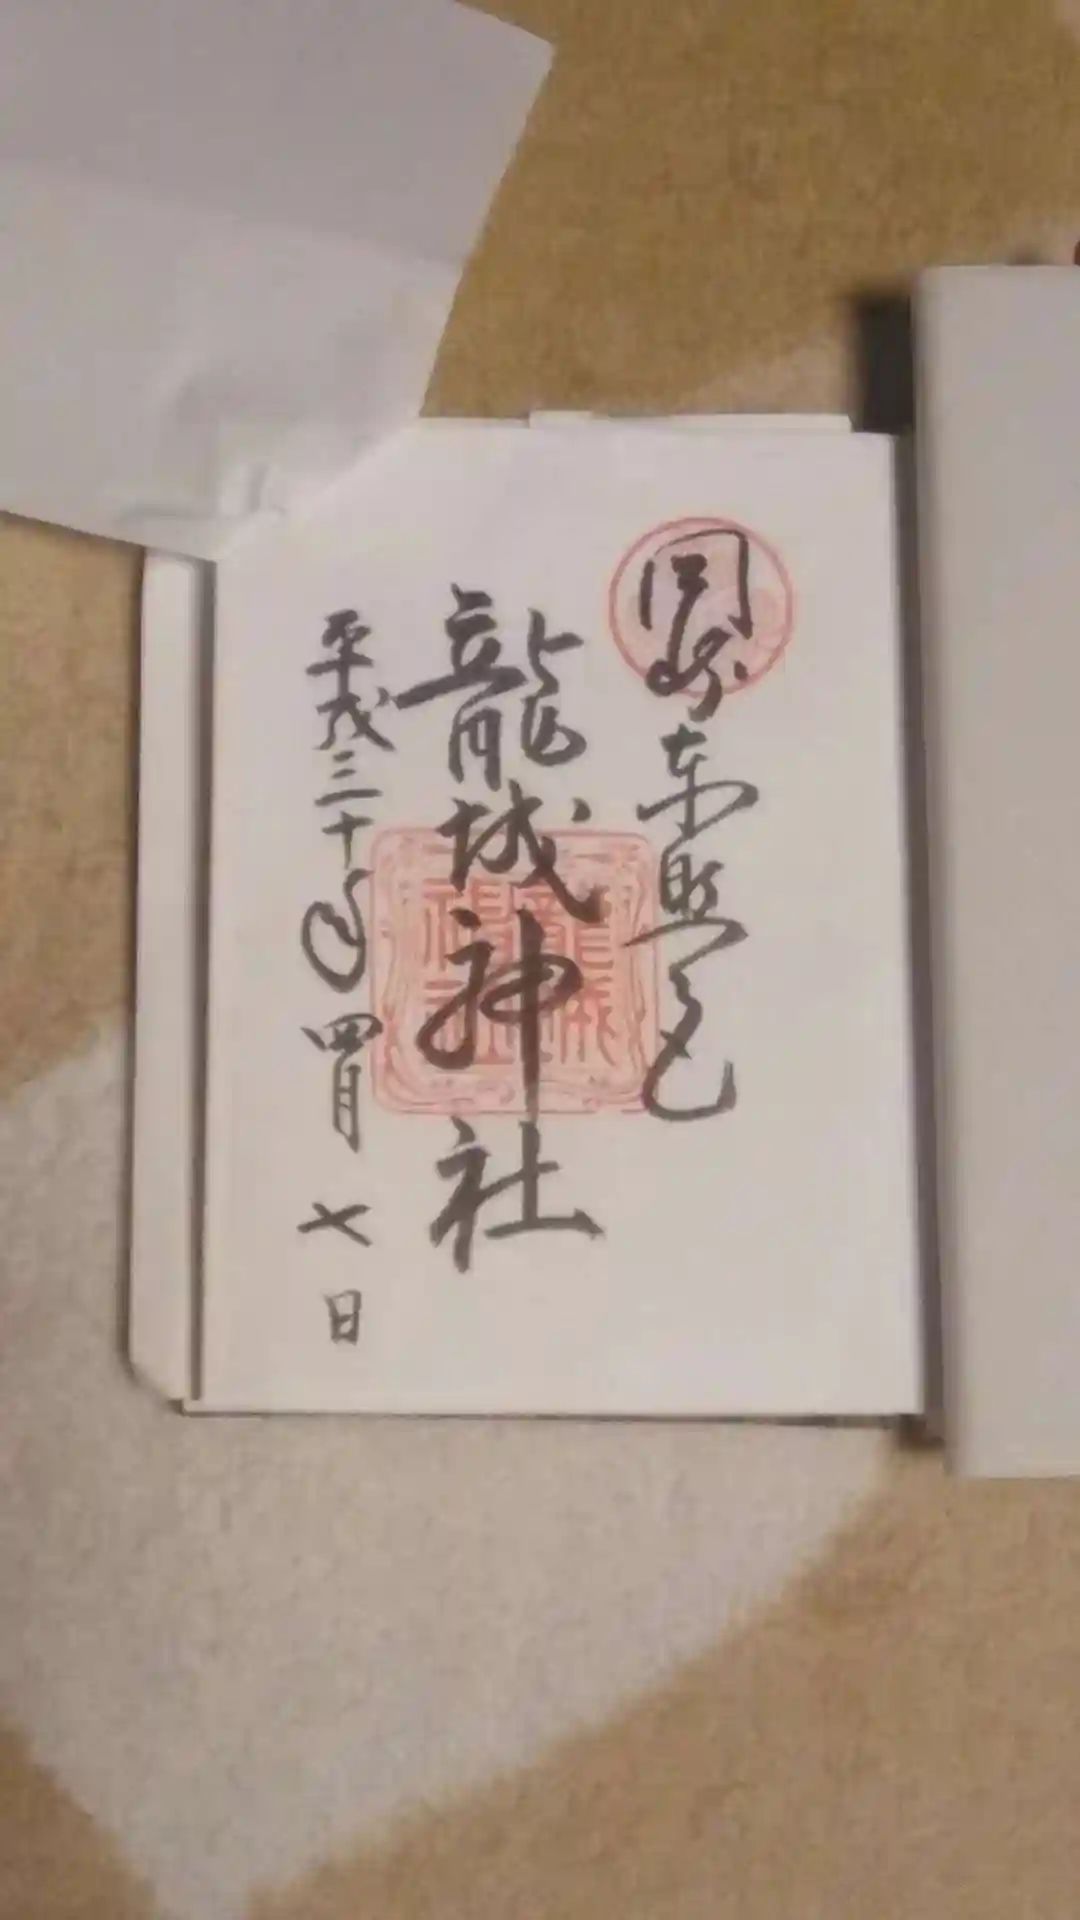 岡崎東照宮
龍城神社
平成三十年四月七日
龍城神社